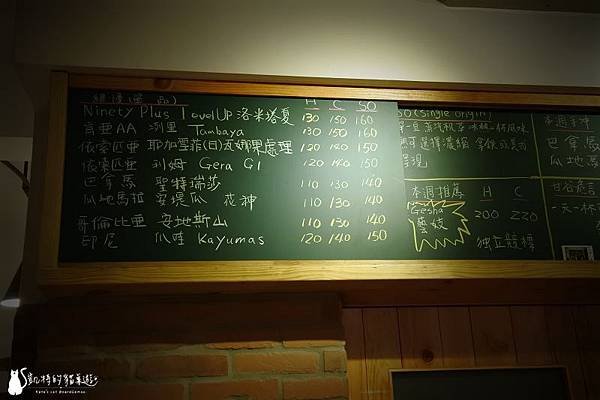 H C SO
Ninety Plus Level Up 洛米塔夏 130 150 160
肯亞AA 洌里 Tambaya 130 150 160
依索匹亞 耶加雪菲(日)瓦娜果處理 120 140 150
依索匹亞 利姆 Gera G1 120 140 150
巴拿馬 聖特瑞莎 110 130 140
瓜地馬拉 安堤瓜 花神 110 130 140
哥倫比亞 安地斯山 110 130 140
印尼 爪哇 Kayumas 120 140 150
SO (single origin)
呈現
本週推薦 H C
Gesha 200 220
藝妓
獨立競標
本週精神
巴拿馬
瓜地馬
一元一杯
凱特的貓桌遊
Kate's cat BoardGames